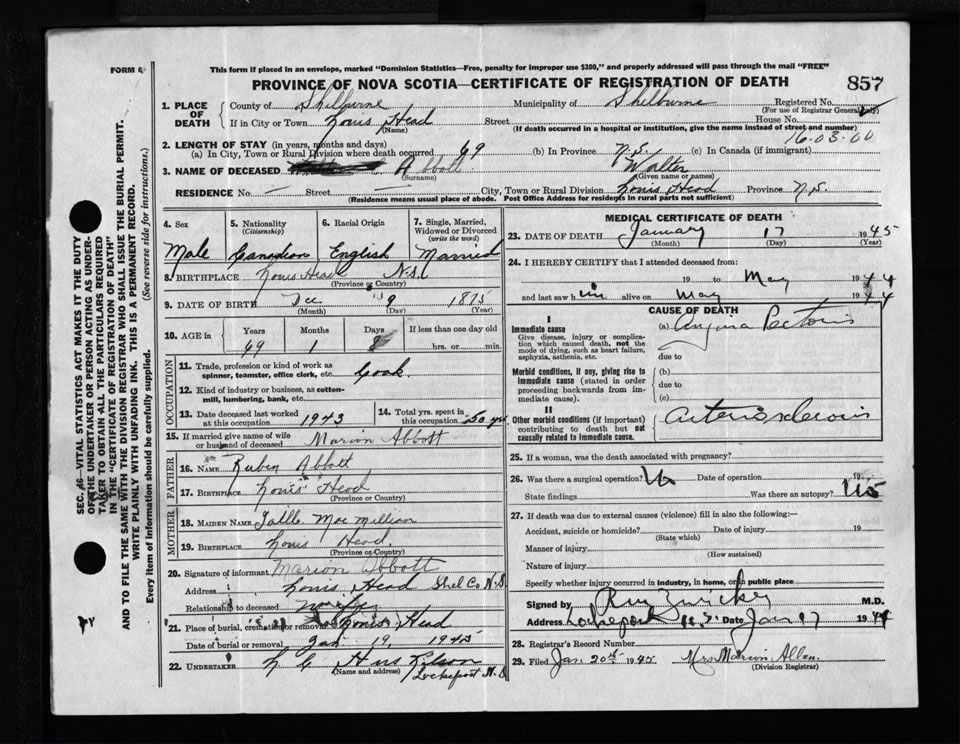 FORM 6
This form if placed in an envelope, marked "Dominion Statistics—Free, penalty for improper use $300," and properly addressed will pass through the mail "FREE"
PROVINCE OF NOVA SCOTIA—CERTIFICATE OF REGISTRATION OF DEATH
857
1. PLACE OF DEATH
County of Shelburne Municipality of Shelburne Registered No.
(For use of Registrar General only)
If in City or Town Louis Head Street House No.
(Name) (If death occurred in a hospital or institution, give the name instead of street and number)
16.03.00
2. LENGTH OF STAY (in years, months and days)
(a) In City, Town or Rural Division where death occurred 69 (b) In Province N.S. (c) In Canada (if immigrant)
3. NAME OF DECEASED Abbott Walter
(Surname) (Given name or names)
RESIDENCE No. — Street — City, Town or Rural Division Louis Head Province N.S.
(Residence means usual place of abode. Post Office Address for residents in rural parts not sufficient)
4. Sex Male
5. Nationality (Citizenship) Canadian
6. Racial Origin English
7. Single, Married, Widowed or Divorced (write the word) Married
8. BIRTHPLACE Louis Head N.S.
(Province or Country)
9. DATE OF BIRTH Dec 9 1875
(Month) (Day) (Year)
10. AGE in Years Months Days If less than one day old
69 1 8 hrs. or min.
OCCUPATION
11. Trade, profession or kind of work as spinner, teamster, office clerk, etc. Cook.
12. Kind of industry or business, as cotton-mill, lumbering, bank, etc.
13. Date deceased last worked at this occupation 1943
14. Total yrs. spent in this occupation 50 yrs
15. If married give name of wife or husband of deceased Marion Abbott
FATHER
16. NAME Ruben Abbott
17. BIRTHPLACE Louis Head
(Province or Country)
MOTHER
18. MAIDEN NAME Mac Millian
19. BIRTHPLACE Louis Head.
(Province or Country)
20. Signature of informant Marion Abbott
Address Louis Head Shel Co N.S.
Relationship to deceased
21. Place of burial, cremation or removal Louis Head
Date of burial or removal Jan 19, 1945
22. UNDERTAKER
(Name and address) Lockeport N.S
MEDICAL CERTIFICATE OF DEATH
23. DATE OF DEATH January 17 1945
(Month) (Day) (Year)
24. I HEREBY CERTIFY that I attended deceased from:
19 to May 1944
and last saw him alive on May 1944
CAUSE OF DEATH
I
Immediate cause (a) Angina Pectoris
Give disease, injury or complication which caused death, not the mode of dying, such as heart failure, asphyxia, asthenia, etc.
due to
Morbid conditions, if any, giving rise to immediate cause (stated in order proceeding backwards from immediate cause).
(b)
due to
(c)
II
Other morbid conditions (if important) contributing to death but not causally related to immediate cause.
Arteriosclerosis
25. If a woman, was the death associated with pregnancy?
26. Was there a surgical operation? No Date of operation 19
State findings Was there an autopsy? No
27. If death was due to external causes (violence) fill in also the following:—
Accident, suicide or homicide? Date of injury 19
(State which)
Manner of injury
(How sustained)
Nature of injury
Specify whether injury occurred in industry, in home, or in public place
Signed by Zwicker M.D.
Address Lockeport N.S. Date Jan 17 1944
28. Registrar's Record Number
29. Filed Jan. 20th 1945 Mrs Marion Allen.
(Division Registrar)
SEC. 46—VITAL STATISTICS ACT MAKES IT THE DUTY
OF THE UNDERTAKER OR PERSON ACTING AS UNDER-
TAKER TO OBTAIN ALL THE PARTICULARS REQUIRED
IN THE "CERTIFICATE OF REGISTRATION OF DEATH"
AND TO FILE THE SAME WITH THE DIVISION REGISTRAR WHO SHALL ISSUE THE BURIAL PERMIT.
WRITE PLAINLY WITH UNFADING INK. THIS IS A PERMANENT RECORD.
Every item of information should be carefully supplied. (See reverse side for instructions.)